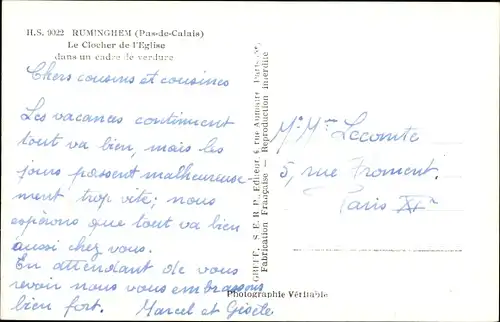 H.S. 9022 RUMINGHEM (Pas-de-Calais)
Le Clocher de l'Eglise
dans un cadre de verdure
Chers cousins et cousines
Les vacances continuent
tout va bien, mais les
jours passent malheureuse-
ment trop vite; nous
espérons que tout va bien
aussi chez vous.
En attendant de vous
revoir nous vous embrassons
bien fort. Marcel et Gisèle
S.E.R.P., Editeur, 6 rue Paris
Fabrication Française - Reproduction interdite
Photographie Véritable
Mr Mme Lecomte
5, rue Froment.
Paris XIe